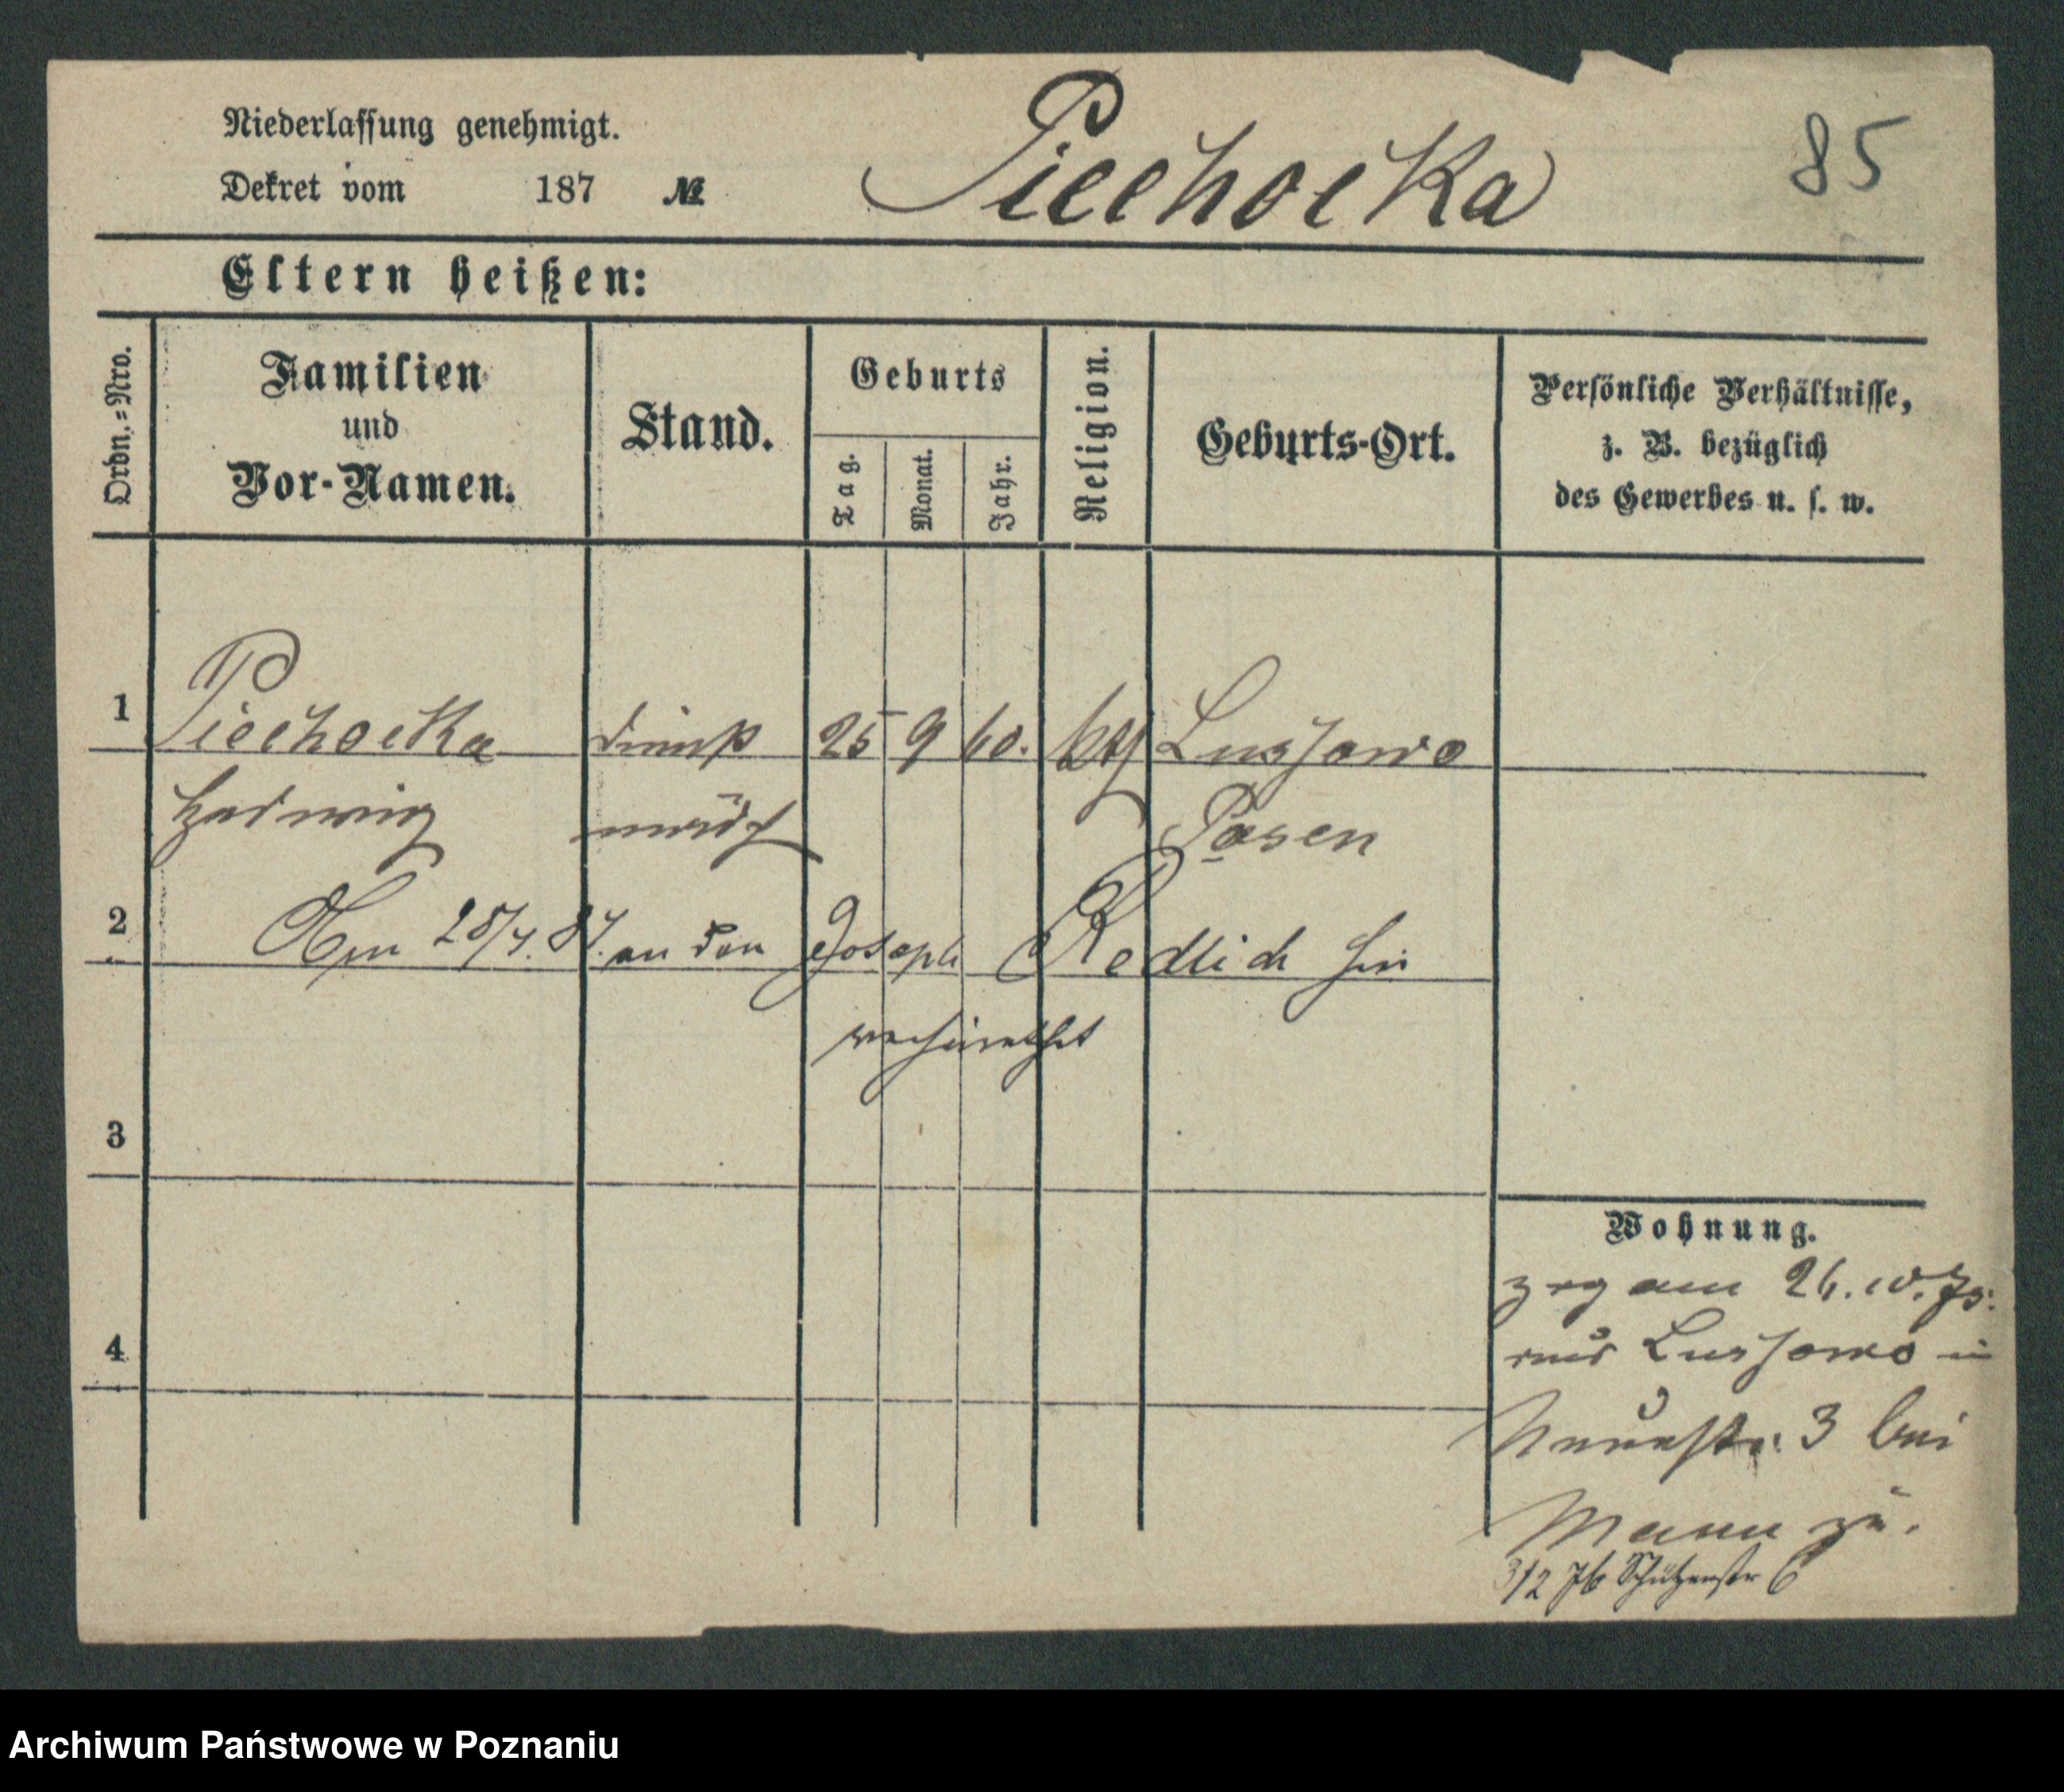 Niederlassung genehmigt.
Dekret vom 187 №
Piechocka
85
Eltern heißen:
Ordn.-Nro.
Familien
und
Vor-Namen.
Stand.
Geburts
Tag.
Monat.
Jahr.
Religion.
Geburts-Ort.
Persönliche Verhältnisse,
z. B. bezüglich
des Gewerbes u. s. w.
1 Piechocka dienst 25 9 60. kth Lussowo
Hedwig mädch Posen
2 Am 28/4. 84. an den Joseph Redlich hier
verheirathet
3
4
Wohnung.
zog am 26. 10. 75.
aus Lussowo in
Neuestr. 3 bei
Mann zu.
3/2 76 Schützenstr 6
Archiwum Państwowe w Poznaniu